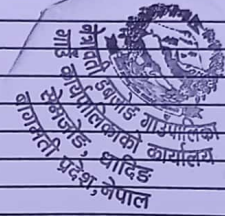 नेत्रावती डबजोङ गाउँपालिका
गाउँ कार्यपालिकाको कार्यालय
सेमजोङ, धादिङ
बागमती प्रदेश, नेपाल